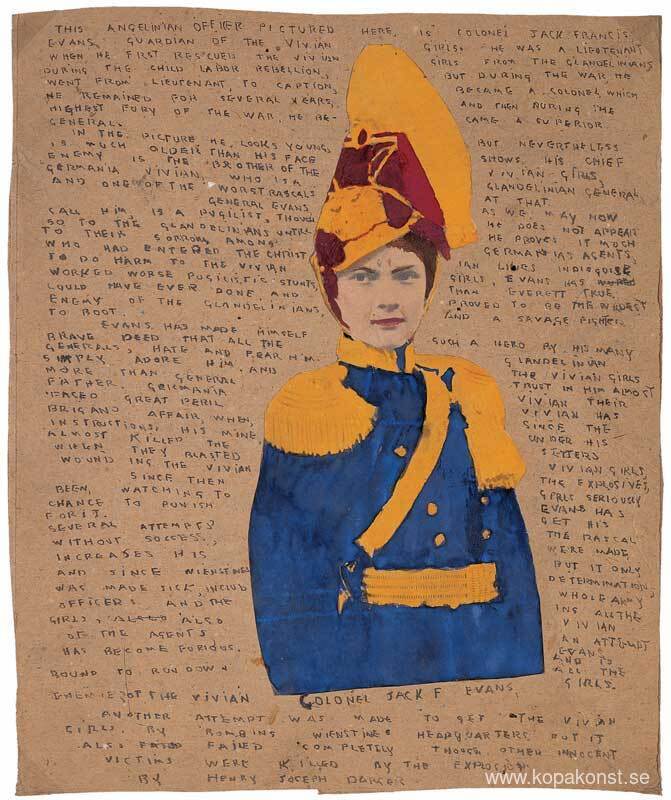 THIS ANGELINIAN OFFICER PICTURED HERE, IS COLONEL JACK FRANCIS
EVANS, GUARDIAN OF THE VIVIAN GIRLS. HE WAS A LIEUTENANT
WHEN HE FIRST RESCUED THE VIVIAN GIRLS FROM THE GLANDELINIANS
DURING THE CHILD LABOR REBELLION, BUT DURING THE WAR HE
WENT FROM LIEUTENANT, TO CAPTION, BECAME A COLONEL WHICH
HE REMAINED FOR SEVERAL YEARS, AND THEN DURING THE
HIGHEST FURY OF THE WAR, HE BE- CAME A SUPERIOR
GENERAL.
IN THE PICTURE HE LOOKS YOUNG, BUT NEVERTHELESS
IS MUCH OLDER THAN HIS FACE SHOWS. HIS CHIEF
ENEMY IS THE BROTHER OF THE VIVIAN GIRLS,
GERMANIA VIVIAN, WHO IS A GLANDELINIAN GENERAL
AND ONE OF THE WORST RASCALS AT THAT.
GENERAL EVANS AS WE MAY NOW
CALL HIM, IS A PUGILIST, THOUGH HE DOES NOT APPEAR
SO TO THE GLANDELINIANS UNTIL HE PROVES IT MUCH
TO THEIR SORROW, AMONG GERMANIAS AGENTS,
WHO HAD ENTERED THE CHRIST IAN LINES INDISGUISE
TO DO HARM TO THE VIVIAN GIRLS, EVANS HAS
WORKED WORSE PUGILISTIC STUNTS, THAN EVERETT TRUE,
COULD HAVE EVER DONE AND PROVED TO BE THE WORST
ENEMY OF THE GLANDELINIANS, AND A SAVAGE FIGHTER
TO BOOT.
EVANS HAS MADE HIMSELF SUCH A HERO BY HIS MANY
BRAVE DEED THAT ALL THE GLANDELINIAN
GENERALS, HATE AND FEAR HIM. THE VIVIAN GIRLS
SIMPLY ADORE HIM, AND TRUST IN HIM ALMOST
MORE THAN GENERAL VIVIAN THEIR
FATHER. GERMANIA VIVIAN HAS
FACED GREAT PERIL SINCE THE
BRIGAND AFFAIR, WHEN, UNDER HIS
INSTRUCTIONS, HIS MINE SETTERS
ALMOST KILLED THE VIVIAN GIRLS
WHEN THEY BLASTED THE EXPLOSIVES,
WOUNDING THE VIVIAN GIRLS SERIOUSLY
SINCE THEN EVANS HAS
BEEN, WATCHING TO GET HIS
CHANCE TO PUNISH THE RASCAL
FOR IT.
SEVERAL ATTEMPTS WERE MADE
WITHOUT SUCCESS, BUT IT ONLY
INCREASES HIS DETERMINATION,
AND SINCE WIENSTINE WHOLE ARMY
WAS MADE SICK, INCLUD ING ALL THE
OFFICERS AND THE VIVIAN
GIRLS, ALSO ALSO AN ATTEMPT
OF THE AGENTS EVANS
HAS BECOME FURIOUS, AND IS
BOUND TO RUN DOWN ALL THE
ENEMIES OF THE VIVIAN GIRLS.
COLONEL JACK F EVANS.
ANOTHER ATTEMPT WAS MADE TO GET THE VIVIAN
GIRLS BY BOMBING WIENSTINES HEADQUARTERS BUT IT
ALSO FAILED COMPLETELY THOUGH OTHER INNOCENT
VICTIMS WERE KILLED BY THE EXPLOSION
BY HENRY JOSEPH DARGER
www.kopakonst.se